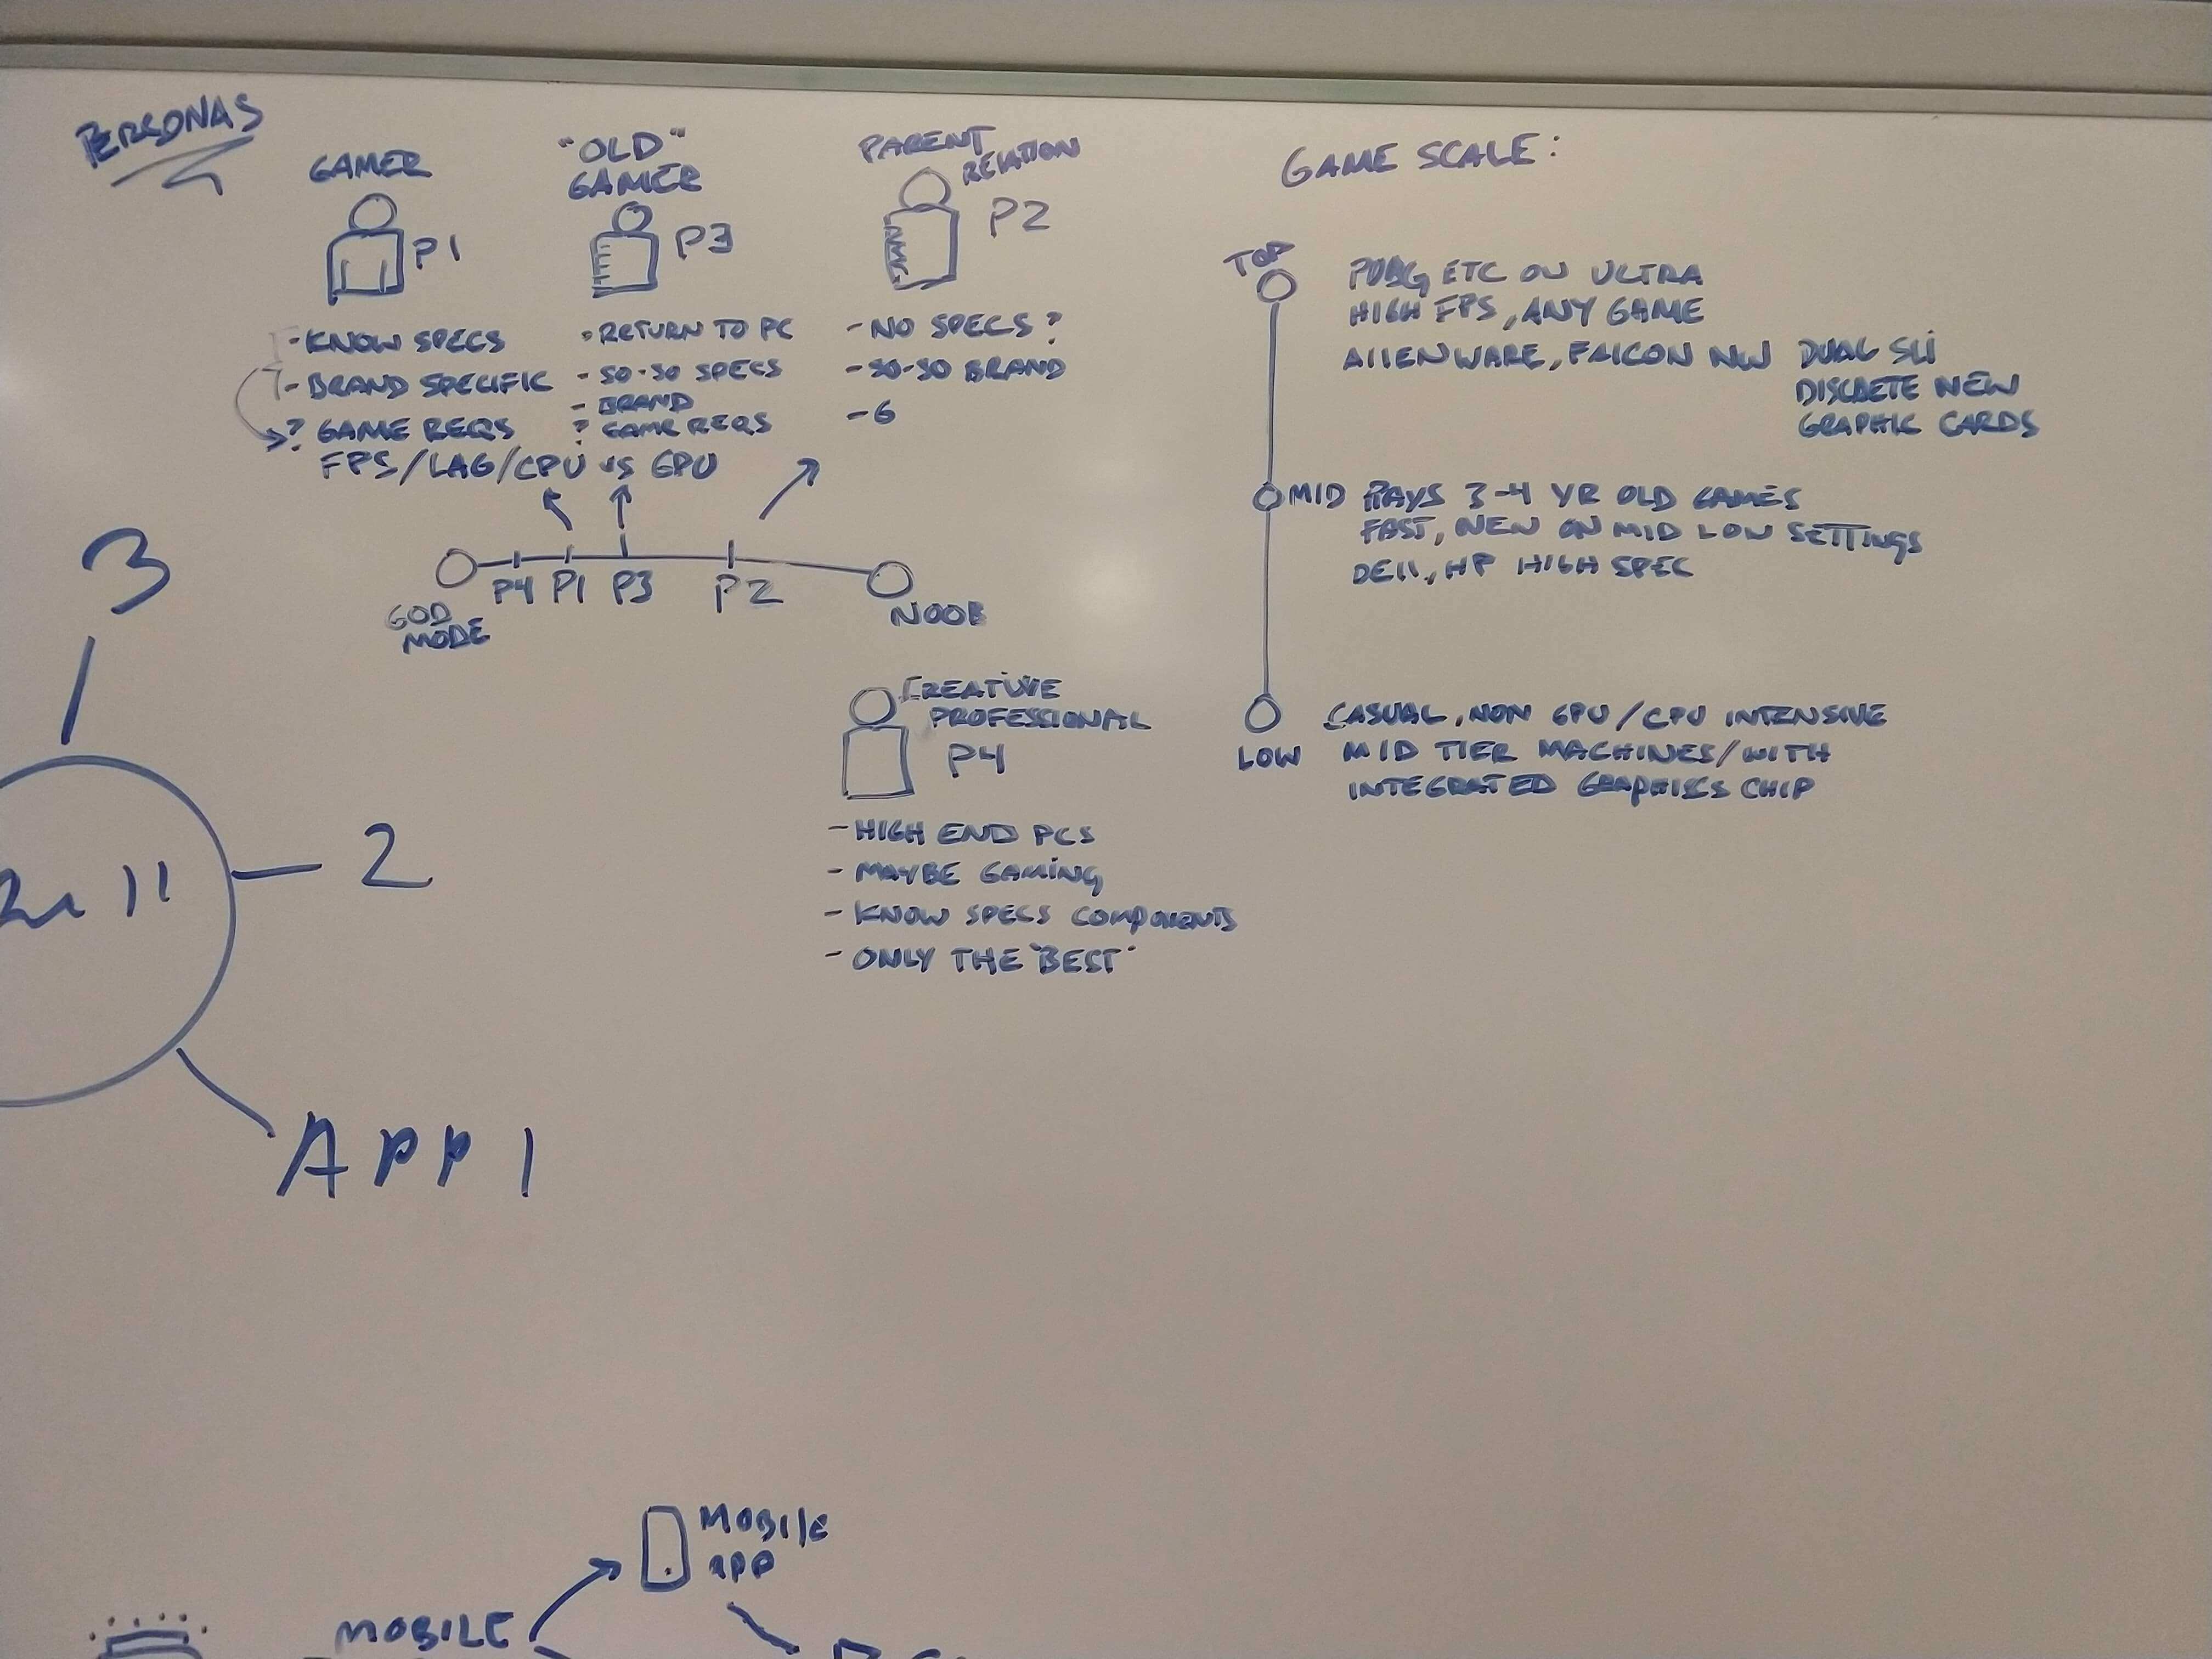 PERSONAS
GAMER
P1
- KNOW SPECS
- BRAND SPECIFIC
? GAME REQS
FPS/LAG/CPU VS GPU
"OLD"
GAMER
P3
• RETURN TO PC
- SO-SO SPECS
- BRAND
? GAME REQS
PARENT
RELATION
P2
- NO SPECS?
- SO-SO BRAND
- G
P4 P1 P3 P2
GOD
MODE
NOOB
CREATIVE
PROFESSIONAL
P4
- HIGH END PCS
- MAYBE GAMING
- KNOW SPECS COMPONENTS
- ONLY THE "BEST"
GAME SCALE:
TOP
PUBG ETC ON ULTRA
HIGH FPS, ANY GAME
AlIENWARE, FAlCON NW
DUAL SLI
DISCRETE NEW
GRAPHIC CARDS
MID PlAYS 3-4 YR OLD GAMES
FAST, NEW ON MID LOW SETTINGS
DEll, HP HIGH SPEC
LOW
CASUAL, NON GPU/CPU INTENSIVE
MID TIER MACHINES/WITH
INTEGRATED GRAPHICS CHIP
3
2
APP 1
MOBIlE
APP
MOBILE